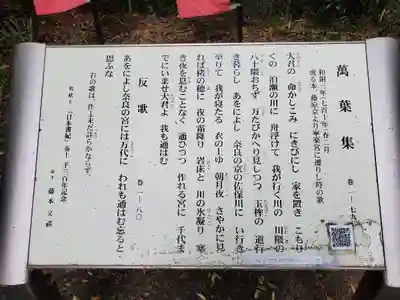 萬葉集 巻一-七九
和銅三年(七百十年)春二月
或る本、藤原京より寧楽宮に遷りし時の歌
大君の 命かしこみ にきびにし 家を置き こもり
くの 泊瀬の川に 舟浮けて 我が行く川の 川隈の
八十隈おちず 万たびかへり見しつつ 玉桙の 道行
き暮らし あをによし 奈良の京の佐保川に い行き
至りて 我が寝たる 衣の上ゆ 朝月夜 さやかに見
れば 栲の穂に 夜の霜降り 岩床と 川の氷凝り 寒
き夜を 息むことなく 通ひつつ 作れる宮に 千代ま
でにいませ大君よ 我も通はむ
反歌 巻一-八〇
あをによし奈良の宮には万代に われも通はむ忘ると
思ふな
右の歌は、作主未だ詳らかならず。
『日本書紀』奏上千三百年記念
藤本